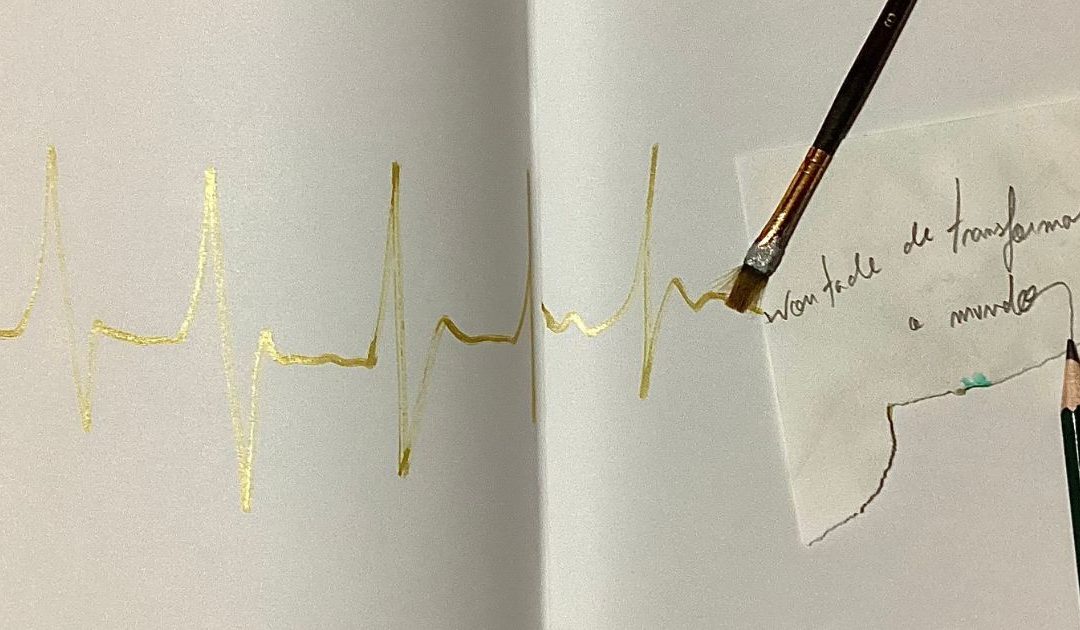 vontade de transformar
o mundo
6